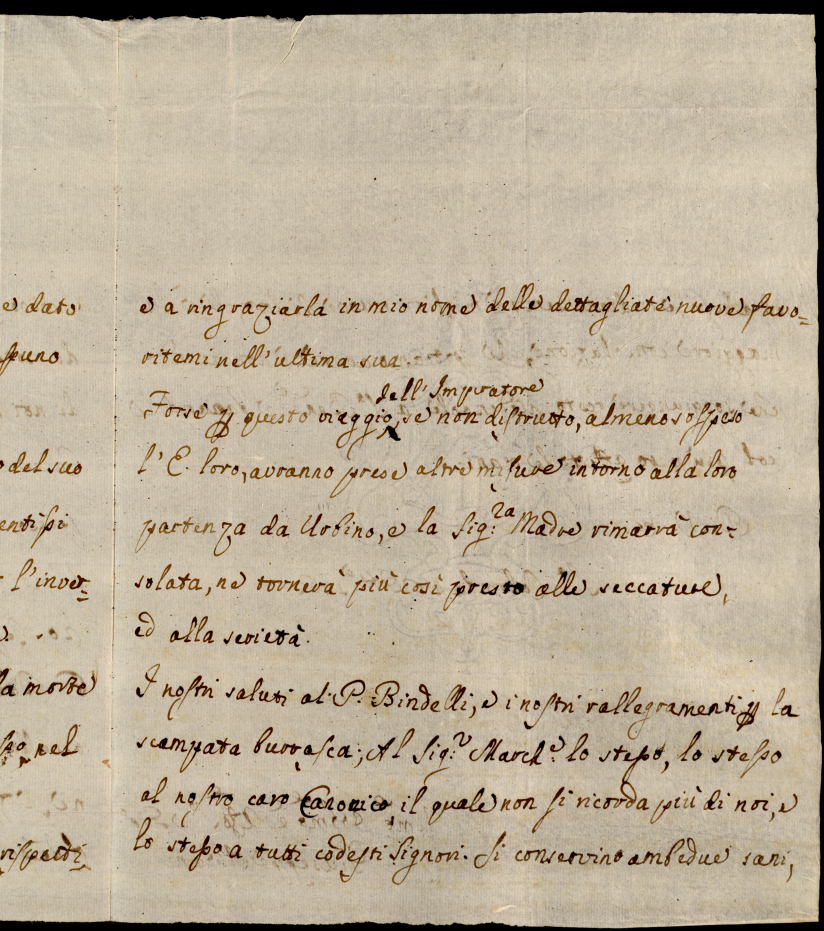 e dato
ssuno
o del suo
entissi
l'inver=
la morte
nel
rispetti
e a ringraziarla in mio nome delle dettagliate nuove favo=
ritemi nell'ultima sua.
dell'Imperatore
Forse p questo viaggio, se non distrutto, almeno sospeso
l'E. loro, avranno prese altre misure intorno alla loro
partenza da Urbino, e la Sig.ra Madre rimarrà con-
solata, nè tornerà più così presto alle seccature,
ed alla serietà.
I nostri saluti al P. Bindelli, e i nostri rallegramenti p la
scampata burrasca; Al Sig.r March.e lo stesso, lo stesso
al nostro caro Canonico, il quale non si ricorda più di noi, e
lo stesso a tutti codesti Signori. Si conservino ambedue sani,